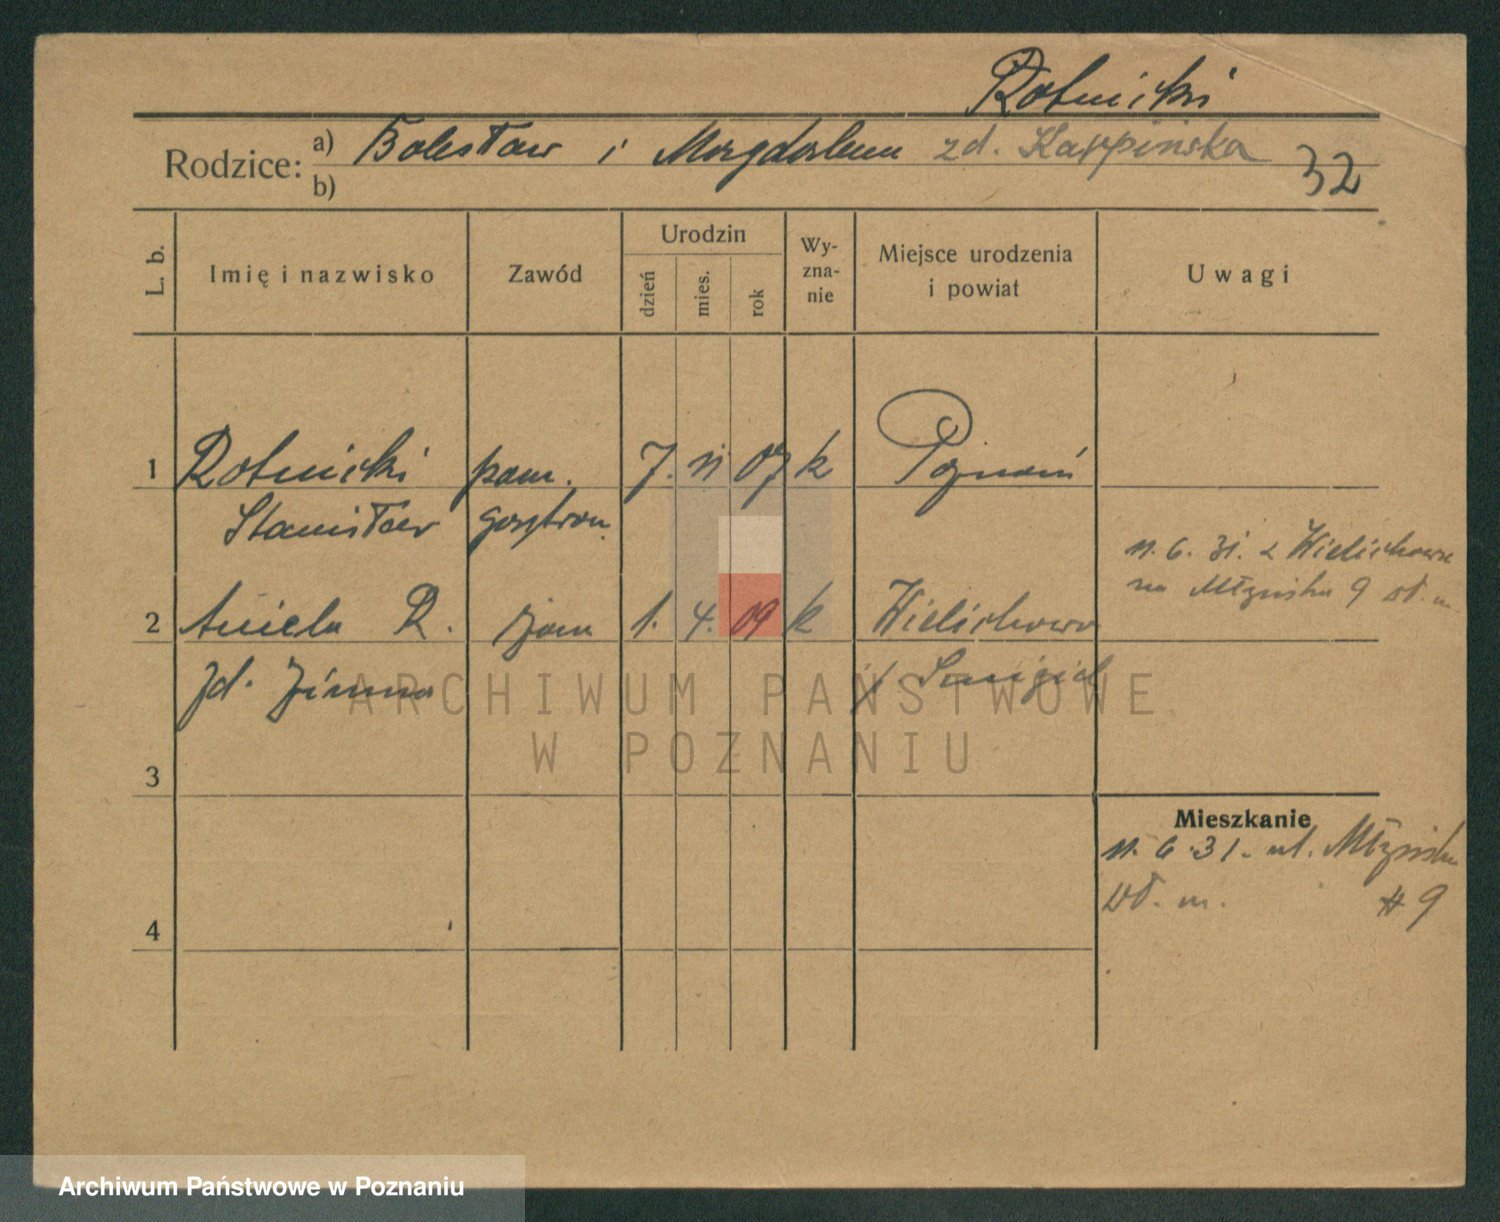 Rotnicki
Rodzice: a) Bolesław i Magdalena zd. Karpińska
b)
32
L. b.
Imię i nazwisko
Zawód
Urodzin
dzień
mies.
rok
Wy-
zna-
nie
Miejsce urodzenia
i powiat
Uwagi
1 Rotnicki pom. 7. VI 07 k Poznań
Stanisław gastron.
11. 6. 31. z Wielichowa
na Młyńska 9 wł. m.
2 Aniela R. żona 1. 4. 09 k Wielichowo
zd. Zimna p/ Śmigiel
ARCHIWUM PAŃSTWOWE
W POZNANIU
3
Mieszkanie
11. 6. 31. ul. Młyńska
wł. m. # 9
4
Archiwum Państwowe w Poznaniu